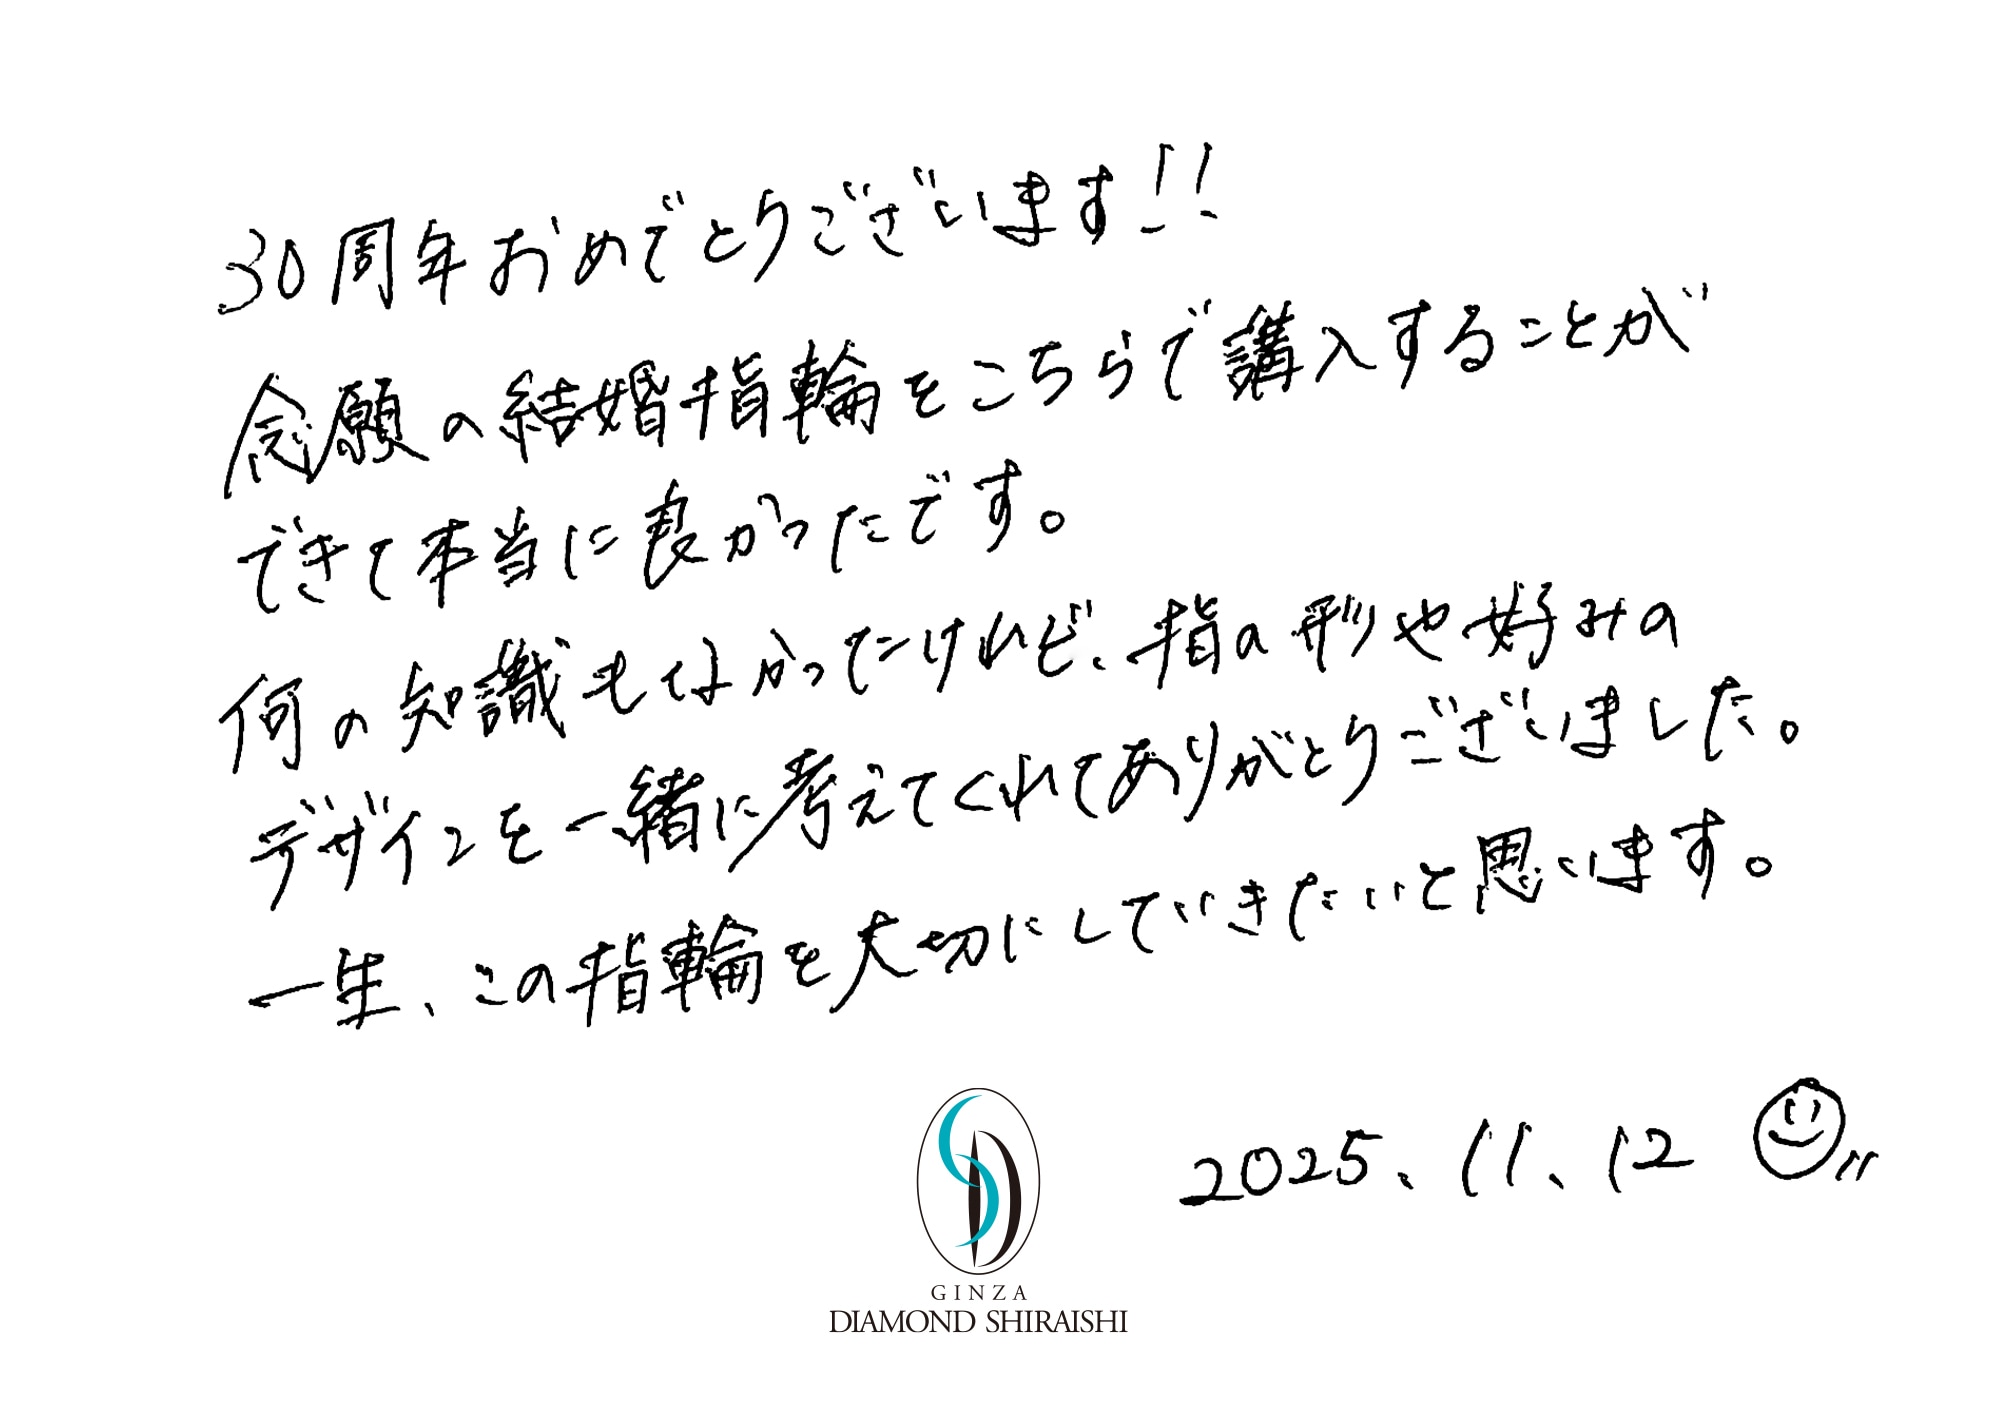 30周年おめでとうございます!!
念願の結婚指輪をこちらで講入することが
できて本当に良かったです。
何の知識もなかったけれど、指の形や好みの
デザインを一緒に考えてくれてありがとうございました。
一生、この指輪を大切にしていきたいと思います。
2025.11.12
GINZA
DIAMOND SHIRAISHI